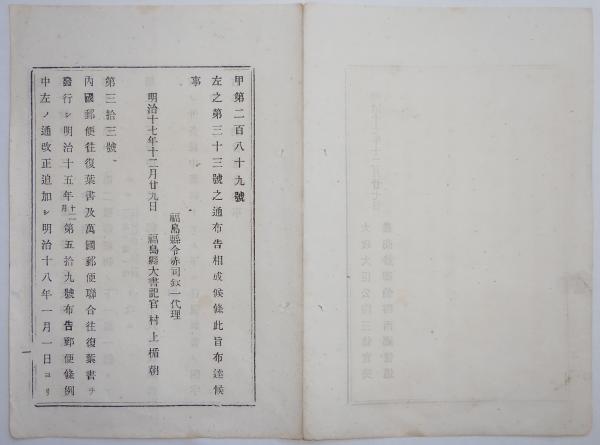 甲第二百八十九號
左之第三十三號之通布告相成候條此旨布達候
事
福島縣令赤司欽一代理
明治十七年十二月廿九日 福島縣大書記官 村上楯朝
第三拾三號
內國郵便往復葉書及萬國郵便聯合往復葉書ヲ
發行シ明治十五年十二月第五拾九號布告郵便條例
中左ノ通改正追加シ明治十八年一月一日ヨリ